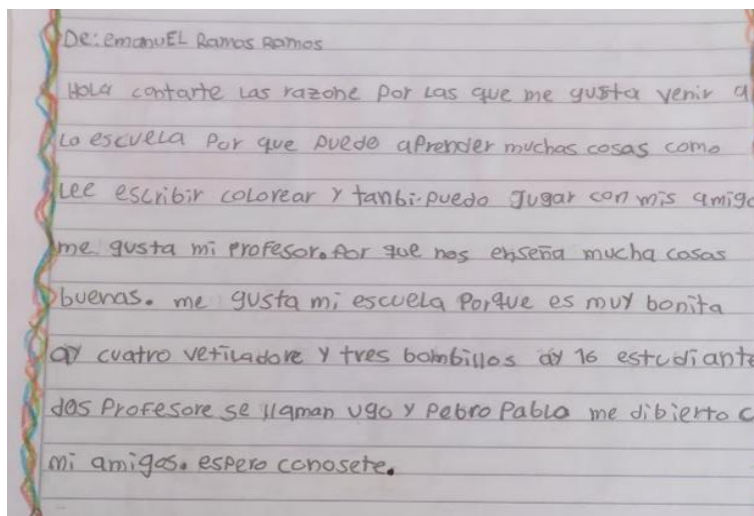 De: emanuEL Ramos Ramos
Hola contarte las razone por las que me gusta venir a
la escuela por que puedo aprender muchas cosas como
Lee escribir colorear y tanbi. puedo jugar con mis amigo
me gusta mi profesor. por que nos enseña mucha cosas
buenas. me gusta mi escuela porque es muy bonita
ay cuatro vetiladore y tres bombillos ay 16 estudiante
dos profesore se llaman ugo y pebro pablo me dibierto c
mi amigos. espero conosete.